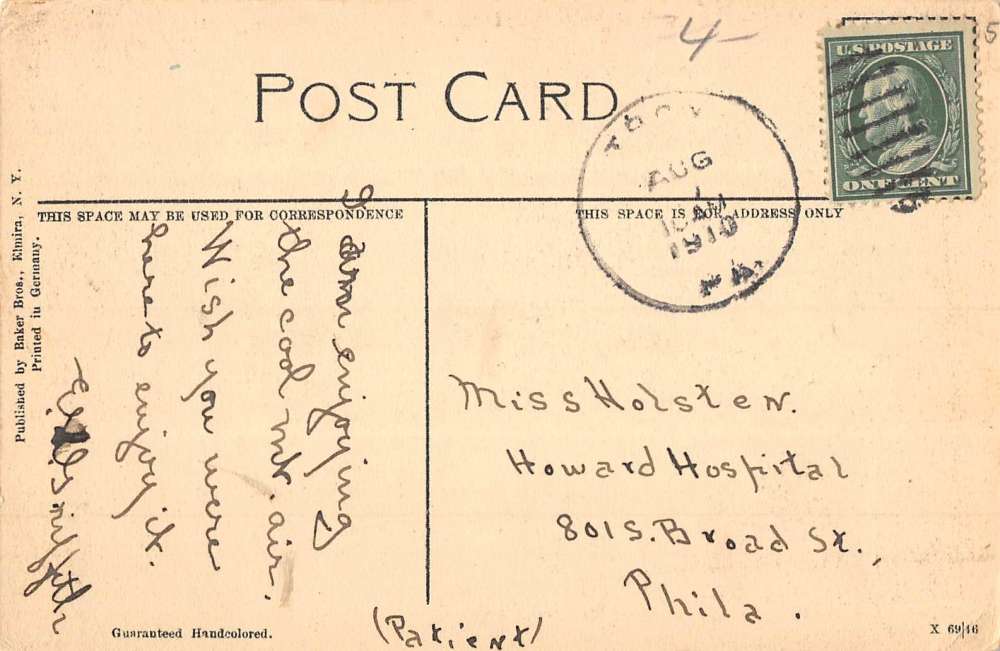 4
5
U.S. POSTAGE
ONE CENT
POST CARD
TROY
AUG
1
10 AM
1910
PA.
THIS SPACE MAY BE USED FOR CORRESPONDENCE
THIS SPACE IS FOR ADDRESS ONLY
I am enjoying
the cool mt. air.
Wish you were
here to enjoy it.
Published by Baker Bros., Elmira, N. Y.
Printed in Germany.
Miss Holsten.
Howard Hospital
801 S. Broad St.,
Phila.
(Patient)
Guaranteed Handcolored.
X 69/46